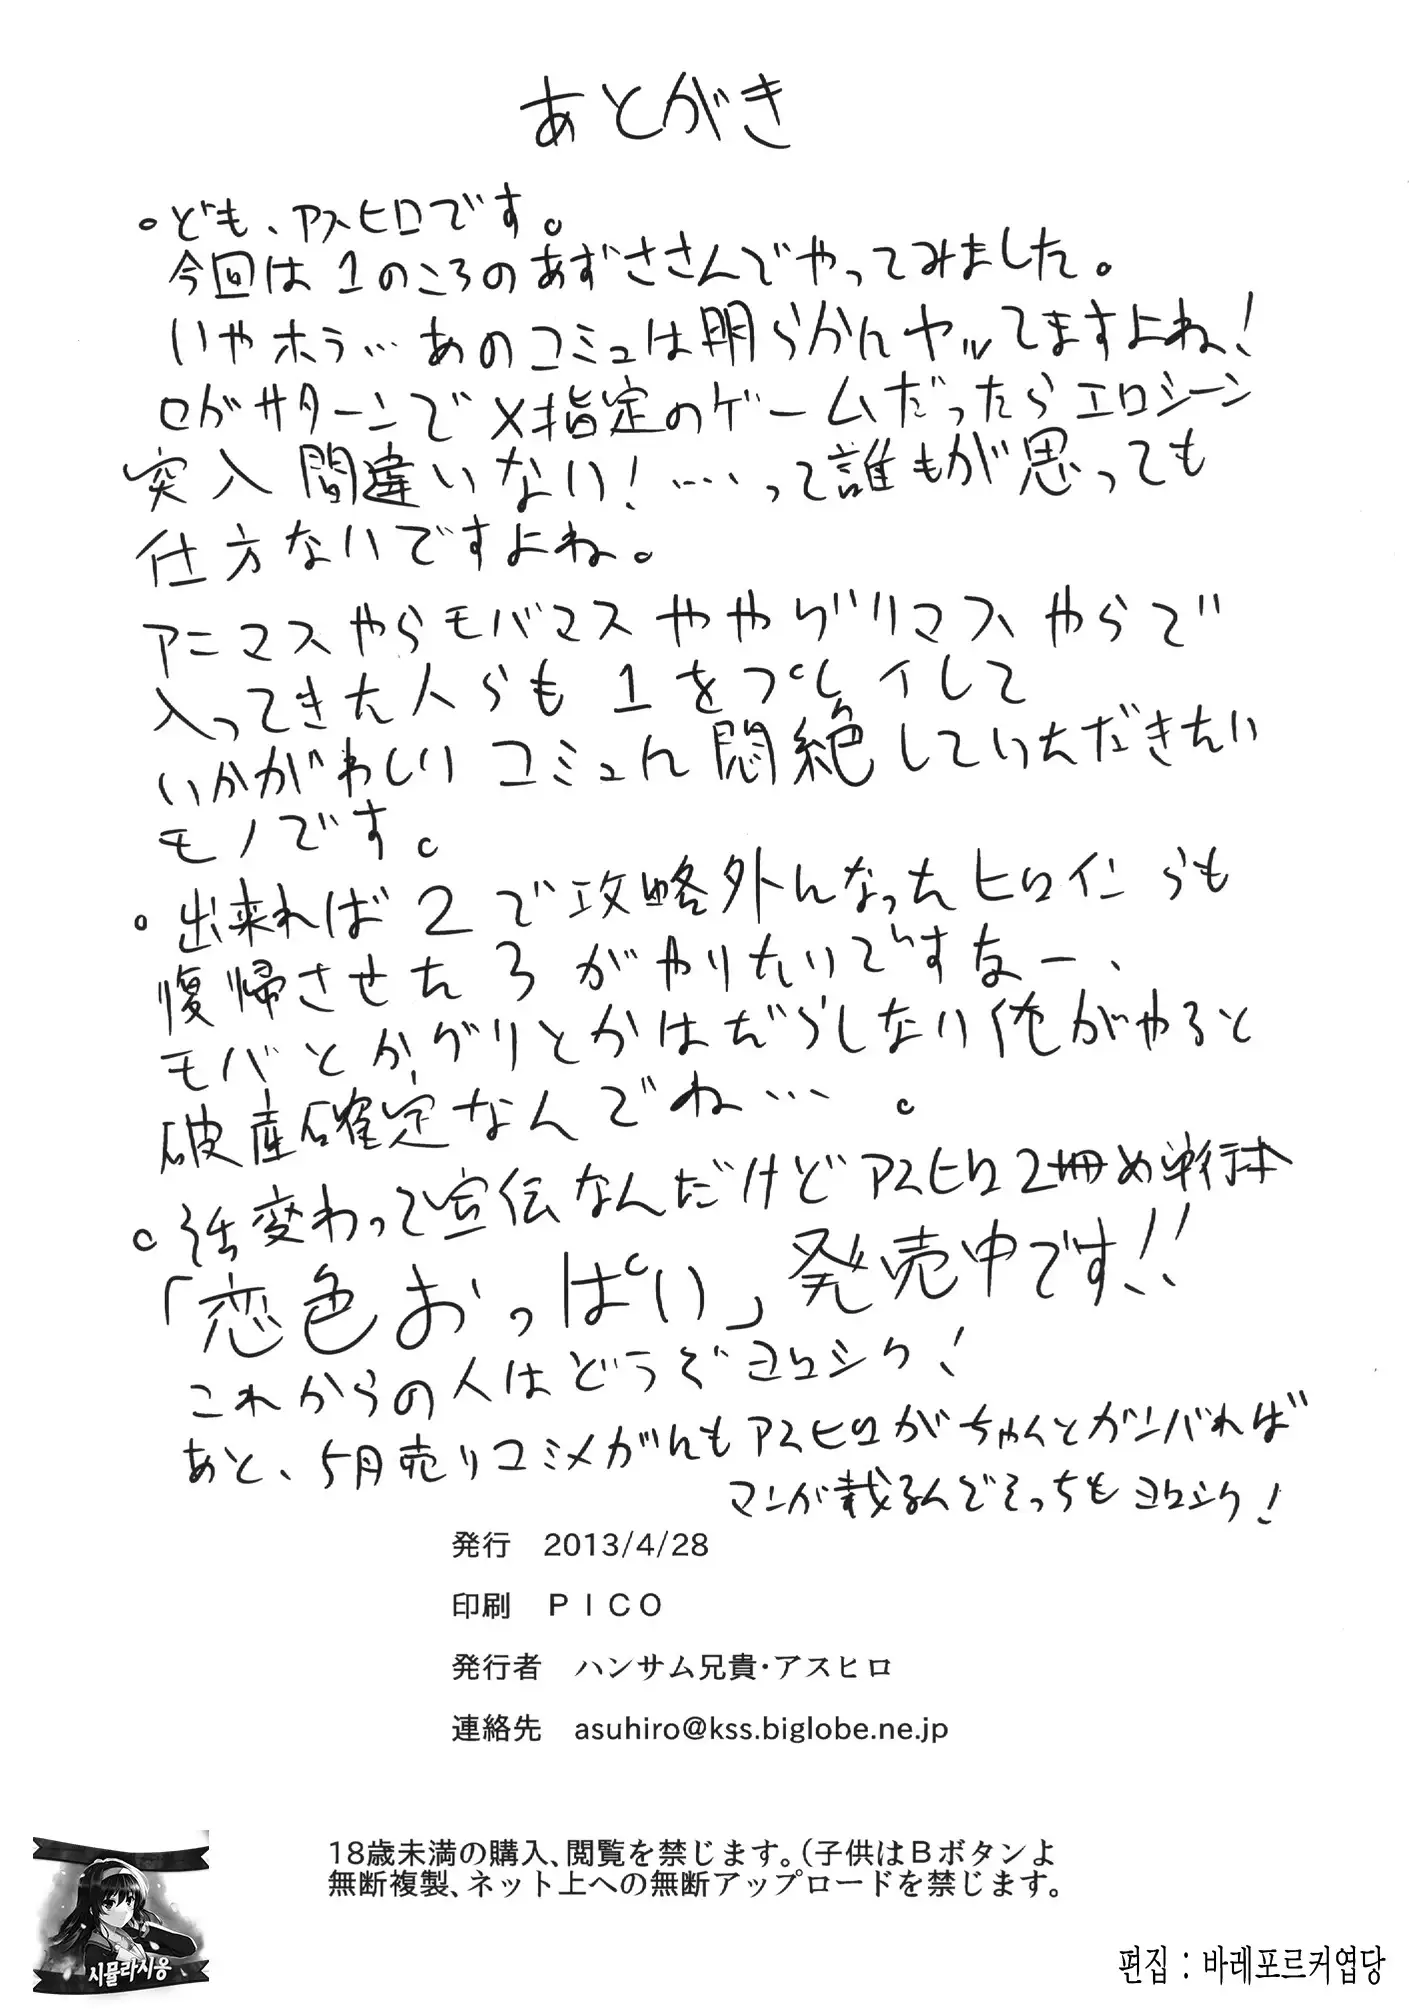 あとがき
。ども、アスヒロです。
今回は1のころのあずささんでやってみました。
いやホラ…あのコミュは明らかにヤッてますよね!
セガサターンでX指定のゲームだったらエロシーン
突入間違いない!……って誰もが思っても
仕方ないですよね。
アニマスやらモバマスやグリマスやらで
入ってきた人らも1をプレイして
いかがわしいコミュに悶絶していただきたい
モノです。
。出来れば2で攻略外になったヒロインらも
復帰させた3がやりたいですなー、
モバとかグリとかはだらしない俺がやると
破産確定なんでね…。
。話変わって宣伝なんだけどアスヒロ2冊め単行本
「恋色おっぱい」発売中です!!
これからの人はどうぞヨロシク!
あと、5月売りコミメガにもアスヒロがちゃんとガンバれば
マンガ載るんでそっちもヨロシク!
発行 2013/4/28
印刷 PICO
発行者 ハンサム兄貴・アスヒロ
連絡先 asuhiro@kss.biglobe.ne.jp
18歳未満の購入、閲覧を禁じます。(子供はBボタンよ
無断複製、ネット上への無断アップロードを禁じます。
시뮬라시옹
편집 : 바레포르커엽당